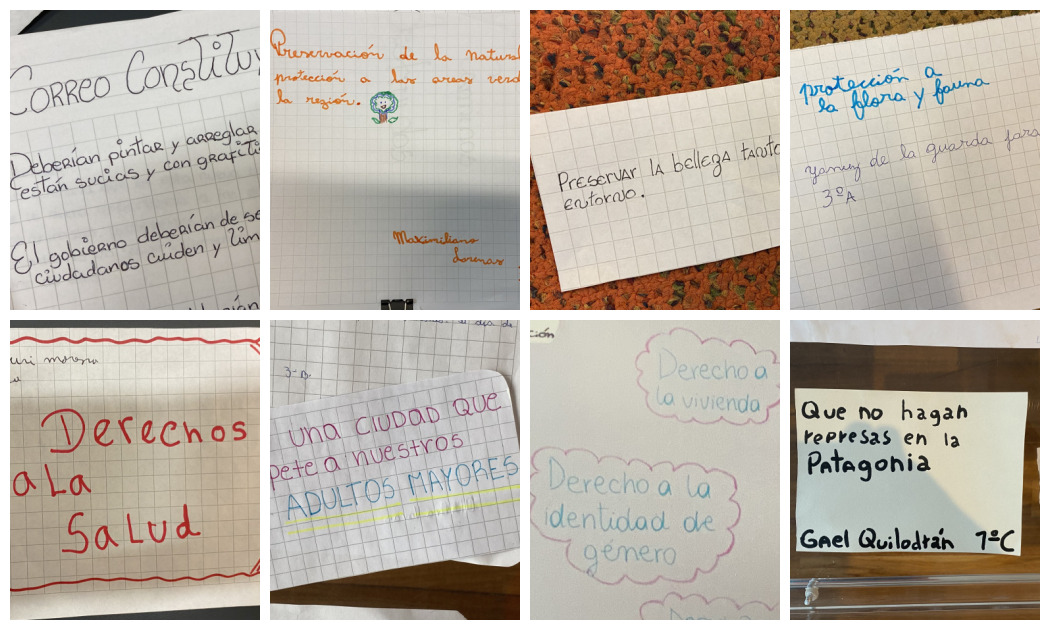 Correo
Deberían pintar y arreglar
están sucias y con
El gobierno deberían de
ciudadanos cuiden y
Preservación de la
protección a las areas
la región.
Maximiliano
Lorenas
Preservar la belleza
entorno.
protección a
la flora y fauna
de la guarda
3ºA
morena
Derechos
a La
Salud
3-B.
una ciudad que
pete a nuestros
ADULTOS MAYORES
ción
Derecho a
la vivienda
Derecho a la
identidad de
género
Que no hagan
represas en la
Patagonia
Gael Quilodrán 7ºC